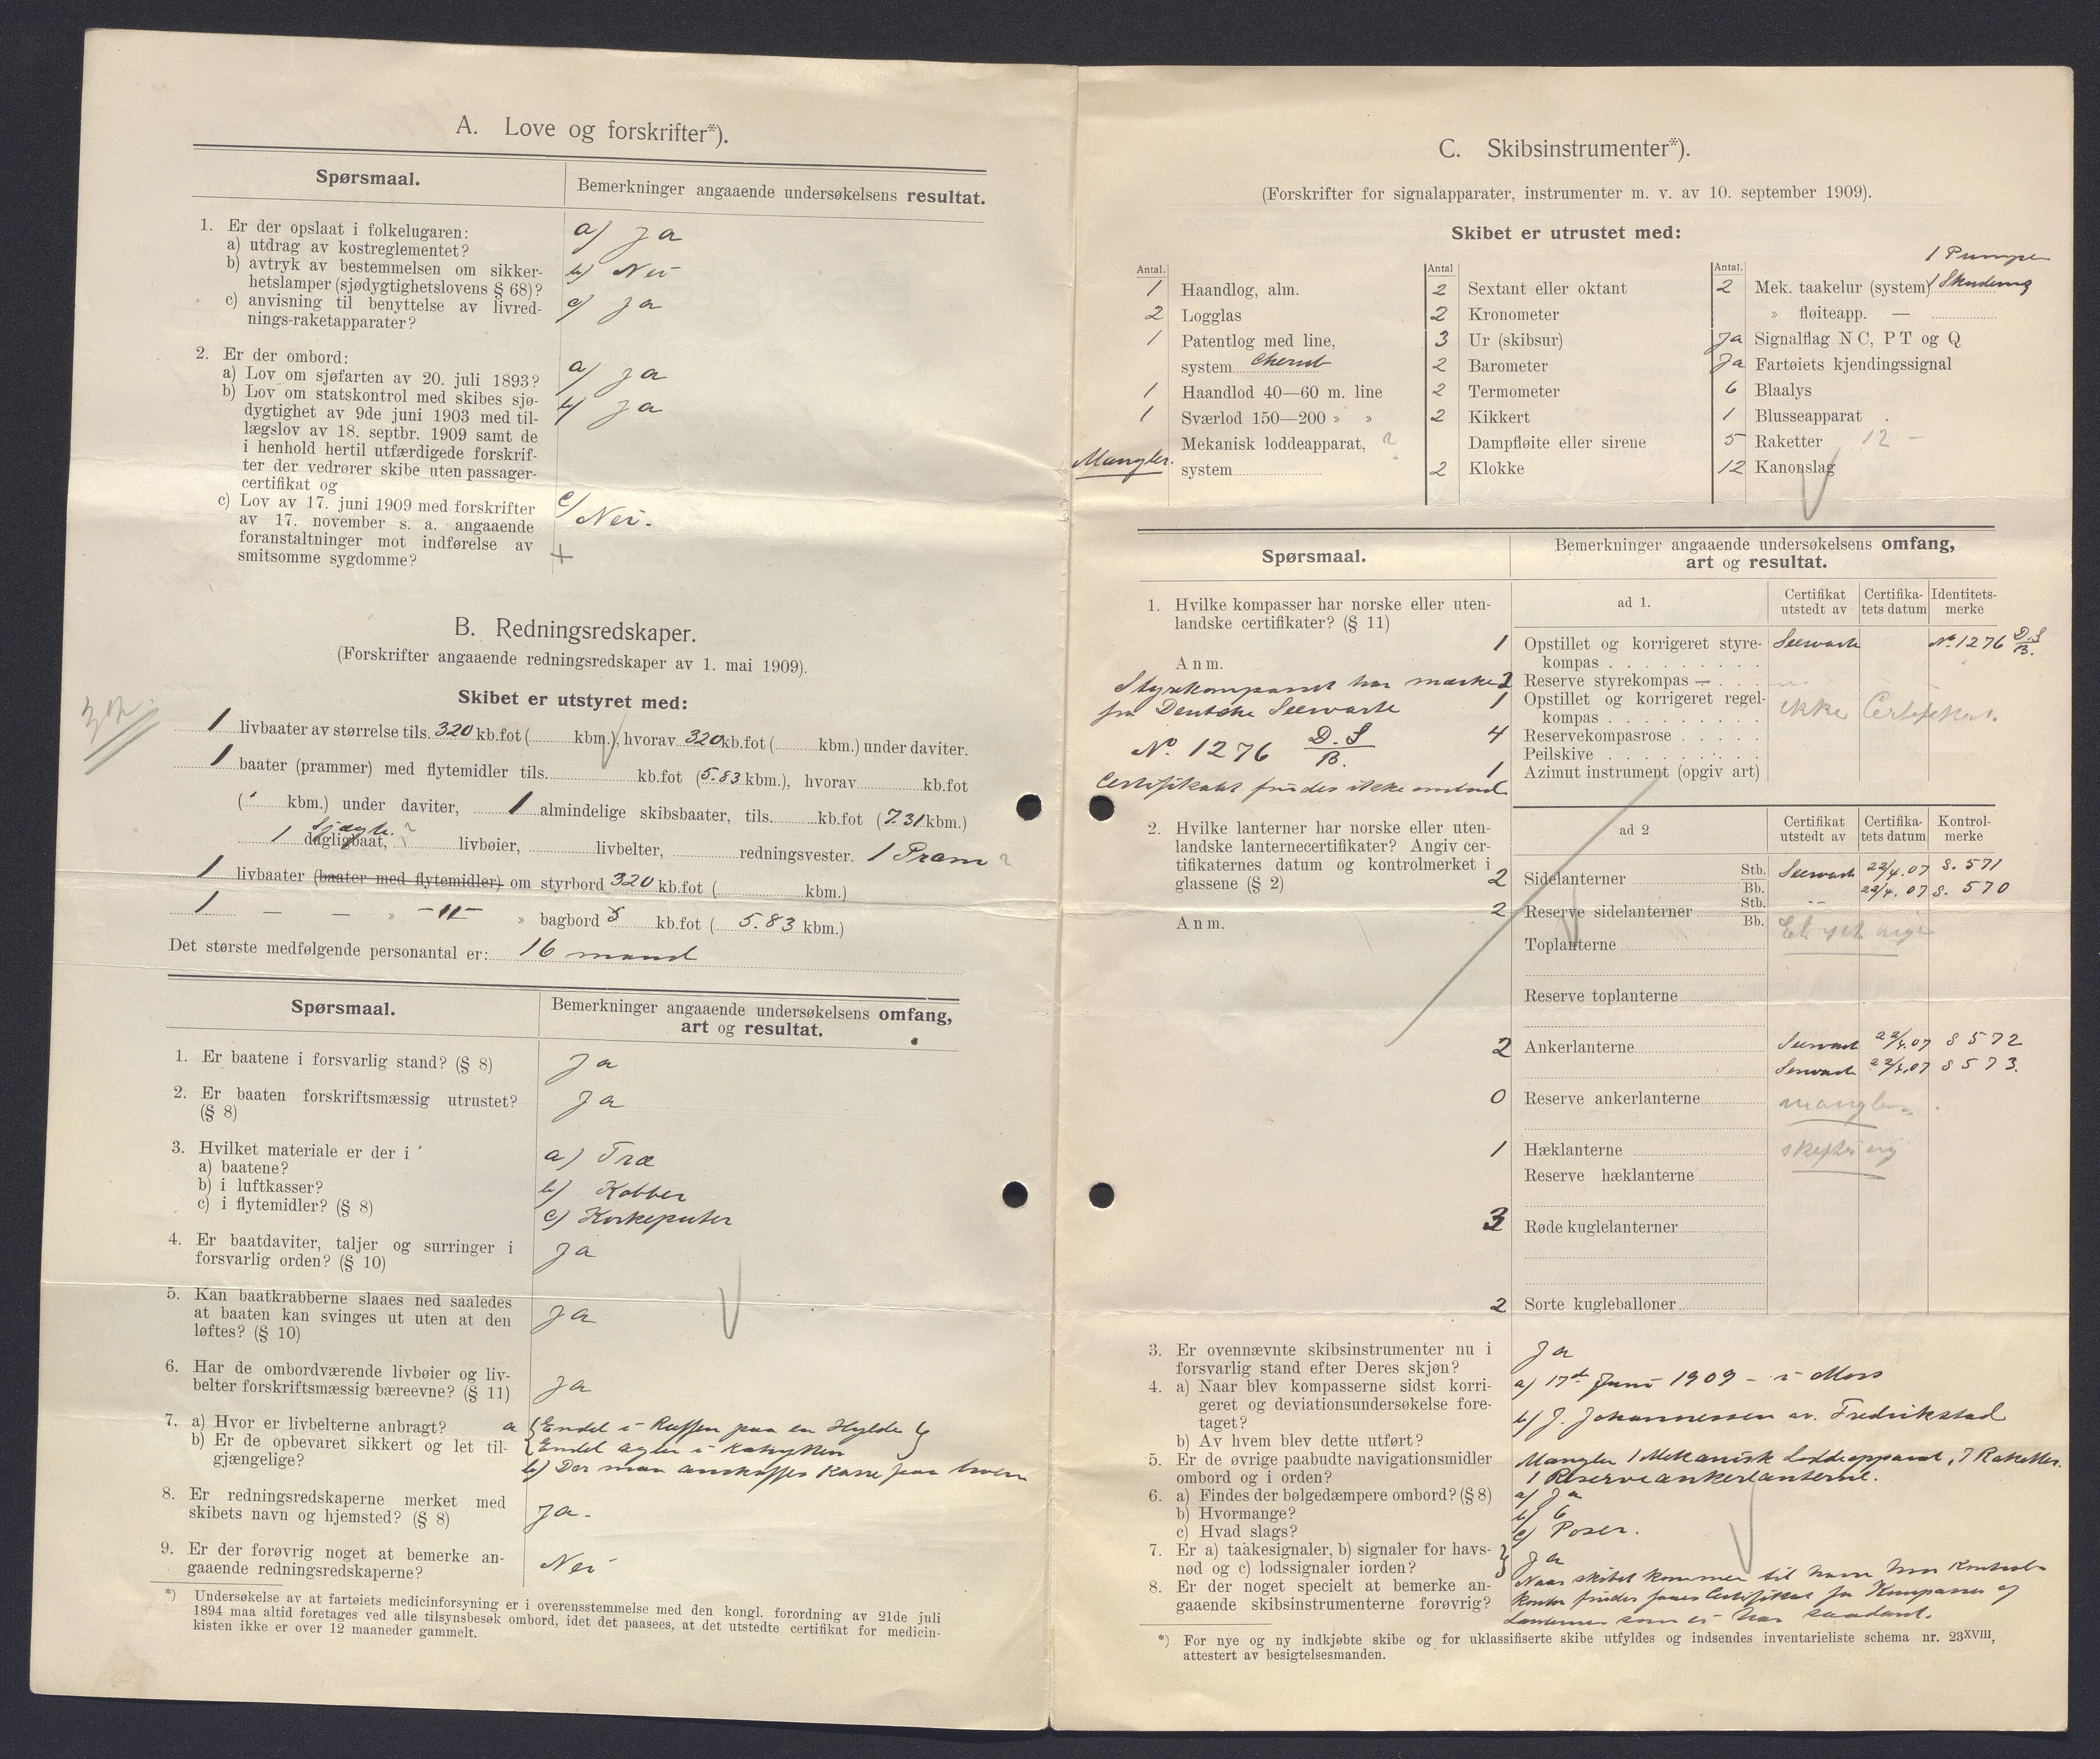 A. Love og forskrifter*).
Spørsmaal.
Bemerkninger angaaende undersøkelsens resultat.
1. Er der opslaat i folkelugaren:
a) utdrag av kostreglementet?
a) Ja
b) avtryk av bestemmelsen om sikker-
hetslamper (sjødygtighetslovens § 68)?
b) Nei
c) anvisning til benyttelse av livred-
nings-raketapparater?
c) Ja
2. Er der ombord:
a) Lov om sjøfarten av 20. juli 1893?
a) Ja
b) Lov om statskontrol med skibes sjø-
dygtighet av 9de juni 1903 med til-
lægslov av 18. septbr. 1909 samt de
i henhold hertil utfærdigede forskrif-
ter der vedrører skibe uten passager-
certifikat og
b) Ja
c) Lov av 17. juni 1909 med forskrifter
av 17. november s. a. angaaende
foranstaltninger mot indførelse av
smitsomme sygdomme?
c) Nei.
+
B. Redningsredskaper.
(Forskrifter angaaende redningsredskaper av 1. mai 1909).
Skibet er utstyret med:
1 livbaater av størrelse tils. 320 kb.fot ( kbm.), hvorav 320 kb.fot ( kbm.) under daviter.
1 baater (prammer) med flytemidler tils. kb.fot (5.83 kbm.), hvorav kb.fot
( kbm.) under daviter, 1 almindelige skibsbaater, tils. kb.fot (7.31 kbm.)
1 dagligbaat, ? livbøier, livbelter, redningsvester. 1 Pram ?
1 livbaater (baater med flytemidler) om styrbord 320 kb.fot ( kbm.)
1 — — » —"— » bagbord kb.fot ( 5.83 kbm.)
Det største medfølgende personantal er: 16 mand
Spørsmaal.
Bemerkninger angaaende undersøkelsens omfang,
art og resultat.
1. Er baatene i forsvarlig stand? (§ 8)
Ja
2. Er baaten forskriftsmæssig utrustet?
(§ 8)
Ja
3. Hvilket materiale er der i
a) baatene?
b) i luftkasser?
c) i flytemidler? (§ 8)
a) Træ
b) Kobber
c) Korkeputer
4. Er baatdaviter, taljer og surringer i
forsvarlig orden? (§ 10)
Ja
5. Kan baatkrabberne slaaes ned saaledes
at baaten kan svinges ut uten at den
løftes? (§ 10)
Ja
6. Har de ombordværende livbøier og liv-
belter forskriftsmæssig bæreevne? (§ 11)
Ja
7. a) Hvor er livbelterne anbragt?
b) Er de opbevaret sikkert og let til-
gjængelige?
a { Endel i Ruffen paa en Hylde }
{ Endel agter i Kahytten
b) Der maa anskaffes Kasse paa
8. Er redningsredskaperne merket med
skibets navn og hjemsted? (§ 8)
Ja.
9. Er der forøvrig noget at bemerke an-
gaaende redningsredskaperne?
Nei
*) Undersøkelse av at fartøiets medicinforsyning er i overensstemmelse med den kongl. forordning av 21de juli
1894 maa altid foretages ved alle tilsynsbesøk ombord, idet det paasees, at det utstedte certifikat for medicin-
kisten ikke er over 12 maaneder gammelt.
C. Skibsinstrumenter*).
(Forskrifter for signalapparater, instrumenter m. v. av 10. september 1909).
Skibet er utrustet med:
Antal.
1 Haandlog, alm.
2 Logglas
1 Patentlog med line,
system Cherub
1 Haandlod 40—60 m. line
1 Sværlod 150—200 » »
Mekanisk loddeapparat, ?
Mangler. system
Antal
2 Sextant eller oktant
2 Kronometer
3 Ur (skibsur)
2 Barometer
2 Termometer
2 Kikkert
Dampfløite eller sirene
2 Klokke
Antal.
1 Pumpe
2 Mek. taakelur (system)
» fløiteapp. —
Ja Signalflag N C, P T og Q
Ja Fartøiets kjendingssignal
6 Blaalys
1 Blusseapparat
5 Raketter 12 –
12 Kanonslag
Spørsmaal.
Bemerkninger angaaende undersøkelsens omfang,
art og resultat.
1. Hvilke kompasser har norske eller uten-
landske certifikater? (§ 11)
Anm.
Styrekompasset har mærke
fra Deutche Seewarte
No. 1276 D. S/B.
Certifikatet findes ikke ombord
ad 1.
Certifikat utstedt av
Certifika-tets datum
Identitets-merke
1 Opstillet og korrigeret styre-
kompas Seewarte No. 1276 D.S/B.
Reserve styrekompas —
1 Opstillet og korrigeret regel-
kompas ikke Certifikat.
4 Reservekompasrose
Peilskive
1 Azimut instrument (opgiv art)
2. Hvilke lanterner har norske eller uten-
landske lanternecertifikater? Angiv cer-
tifikaternes datum og kontrolmerket i
glassene (§ 2)
Anm.
ad 2
Certifikat utstedt av
Certifika-tets datum
Kontrol-merke
2 Sidelanterner Stb. Seewart 22/4.07 S. 571
Bb. 22/4.07 S. 570
2 Reserve sidelanterner Stb.
Bb.
Toplanterne
Reserve toplanterne
2 Ankerlanterne Seewart 22/4.07 S 572
Seewart 22/4.07 S 573.
0 Reserve ankerlanterne mangler.
1 Hæklanterne
Reserve hæklanterne
3 Røde kuglelanterner
2 Sorte kugleballoner
3. Er ovennævnte skibsinstrumenter nu i
forsvarlig stand efter Deres skjøn?
Ja
4. a) Naar blev kompasserne sidst korri-
geret og deviationsundersøkelse fore-
taget?
b) Av hvem blev dette utført?
a) 17de Juni 1909 – i Moss
b) J. Johannessen av. Fredrikstad
5. Er de øvrige paabudte navigationsmidler
ombord og i orden?
Mangler 1 Mekanisk Loddeapparat, 7 Raketter.
1 Reserveankerlanterne.
6. a) Findes der bølgedæmpere ombord? (§ 8)
b) Hvormange?
c) Hvad slags?
a) Ja
b) 6
c) Poser.
7. Er a) taakesignaler, b) signaler for havs-
nød og c) lodssignaler iorden?
} Ja
8. Er der noget specielt at bemerke an-
gaaende skibsinstrumenterne forøvrig?
Naar skibet kommer til havn hvor Kontrol-
kontor findes faaes Certifikat for Kompasser og
Lanterner som ei har saadant.
*) For nye og ny indkjøbte skibe og for uklassifiserte skibe utfyldes og indsendes inventarieliste schema nr. 23XVIII,
attestert av besigtelsesmanden.